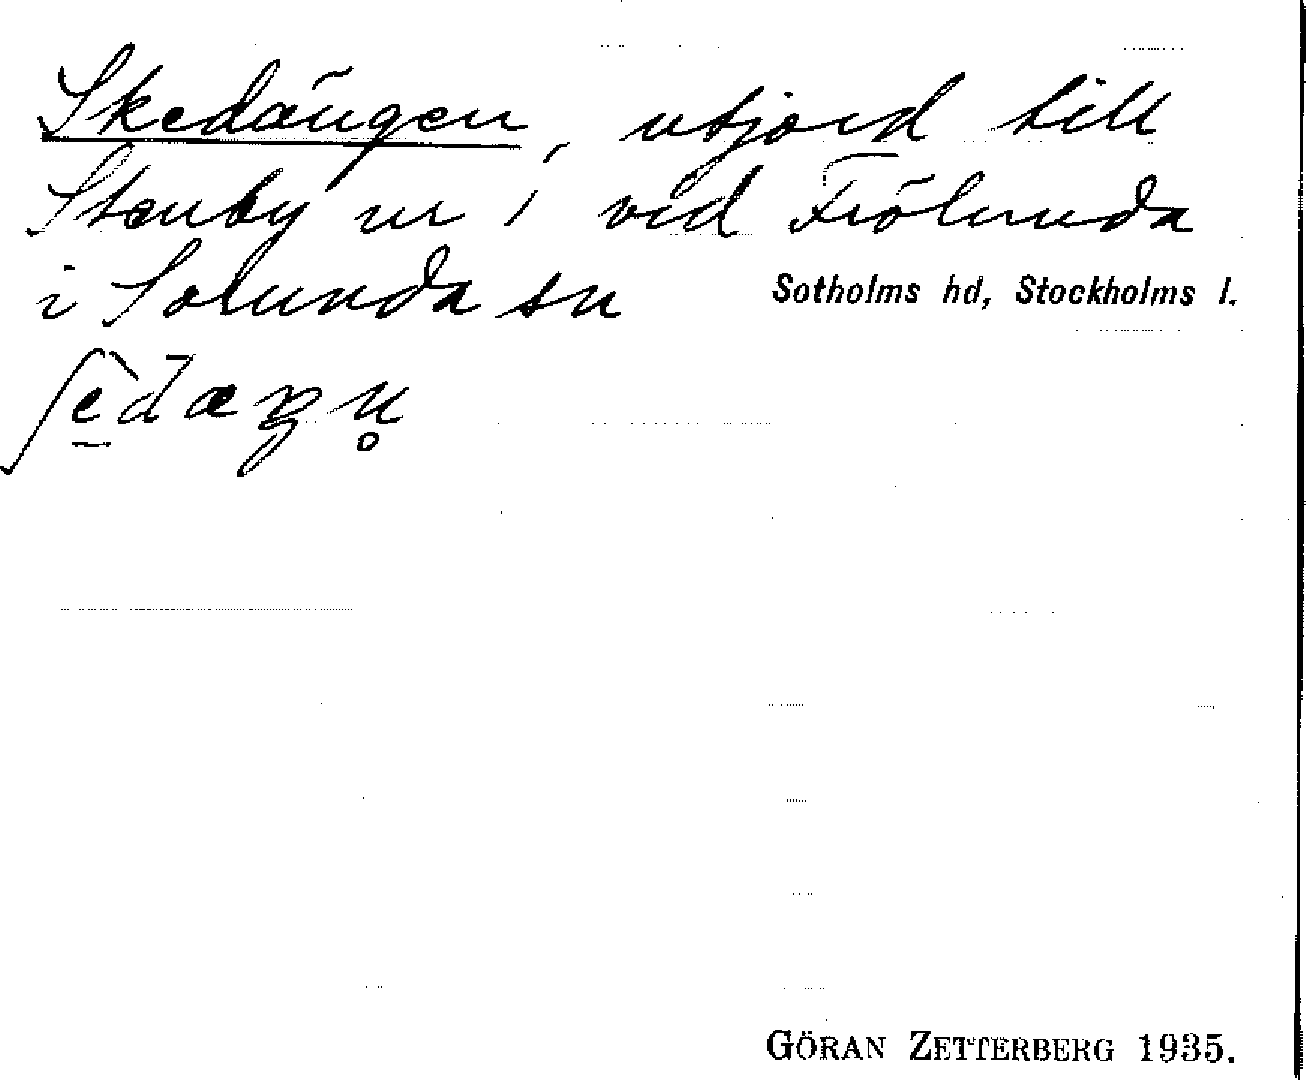 Skedängen, utjord till
Stenby nr 1 vid Frölunda
i Sorunda sn
Sotholms hd, Stockholms l.
GÖRAN ZETTERBERG 1935.